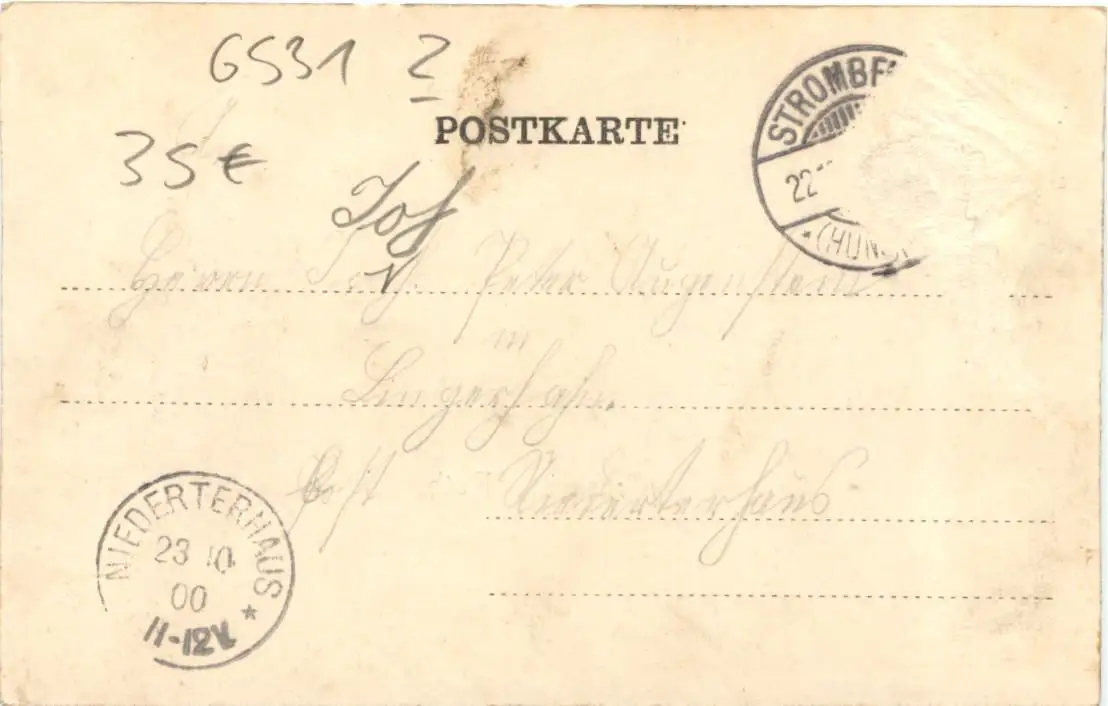 6531 Z
POSTKARTE
35 €
STROMBE
22
(HUNS
Jos
Herrn Peter Augenstein
in
Lingerhahn.
Post Niederterhaus
NIEDERTERHAUS *
23 10
00
11-12V.